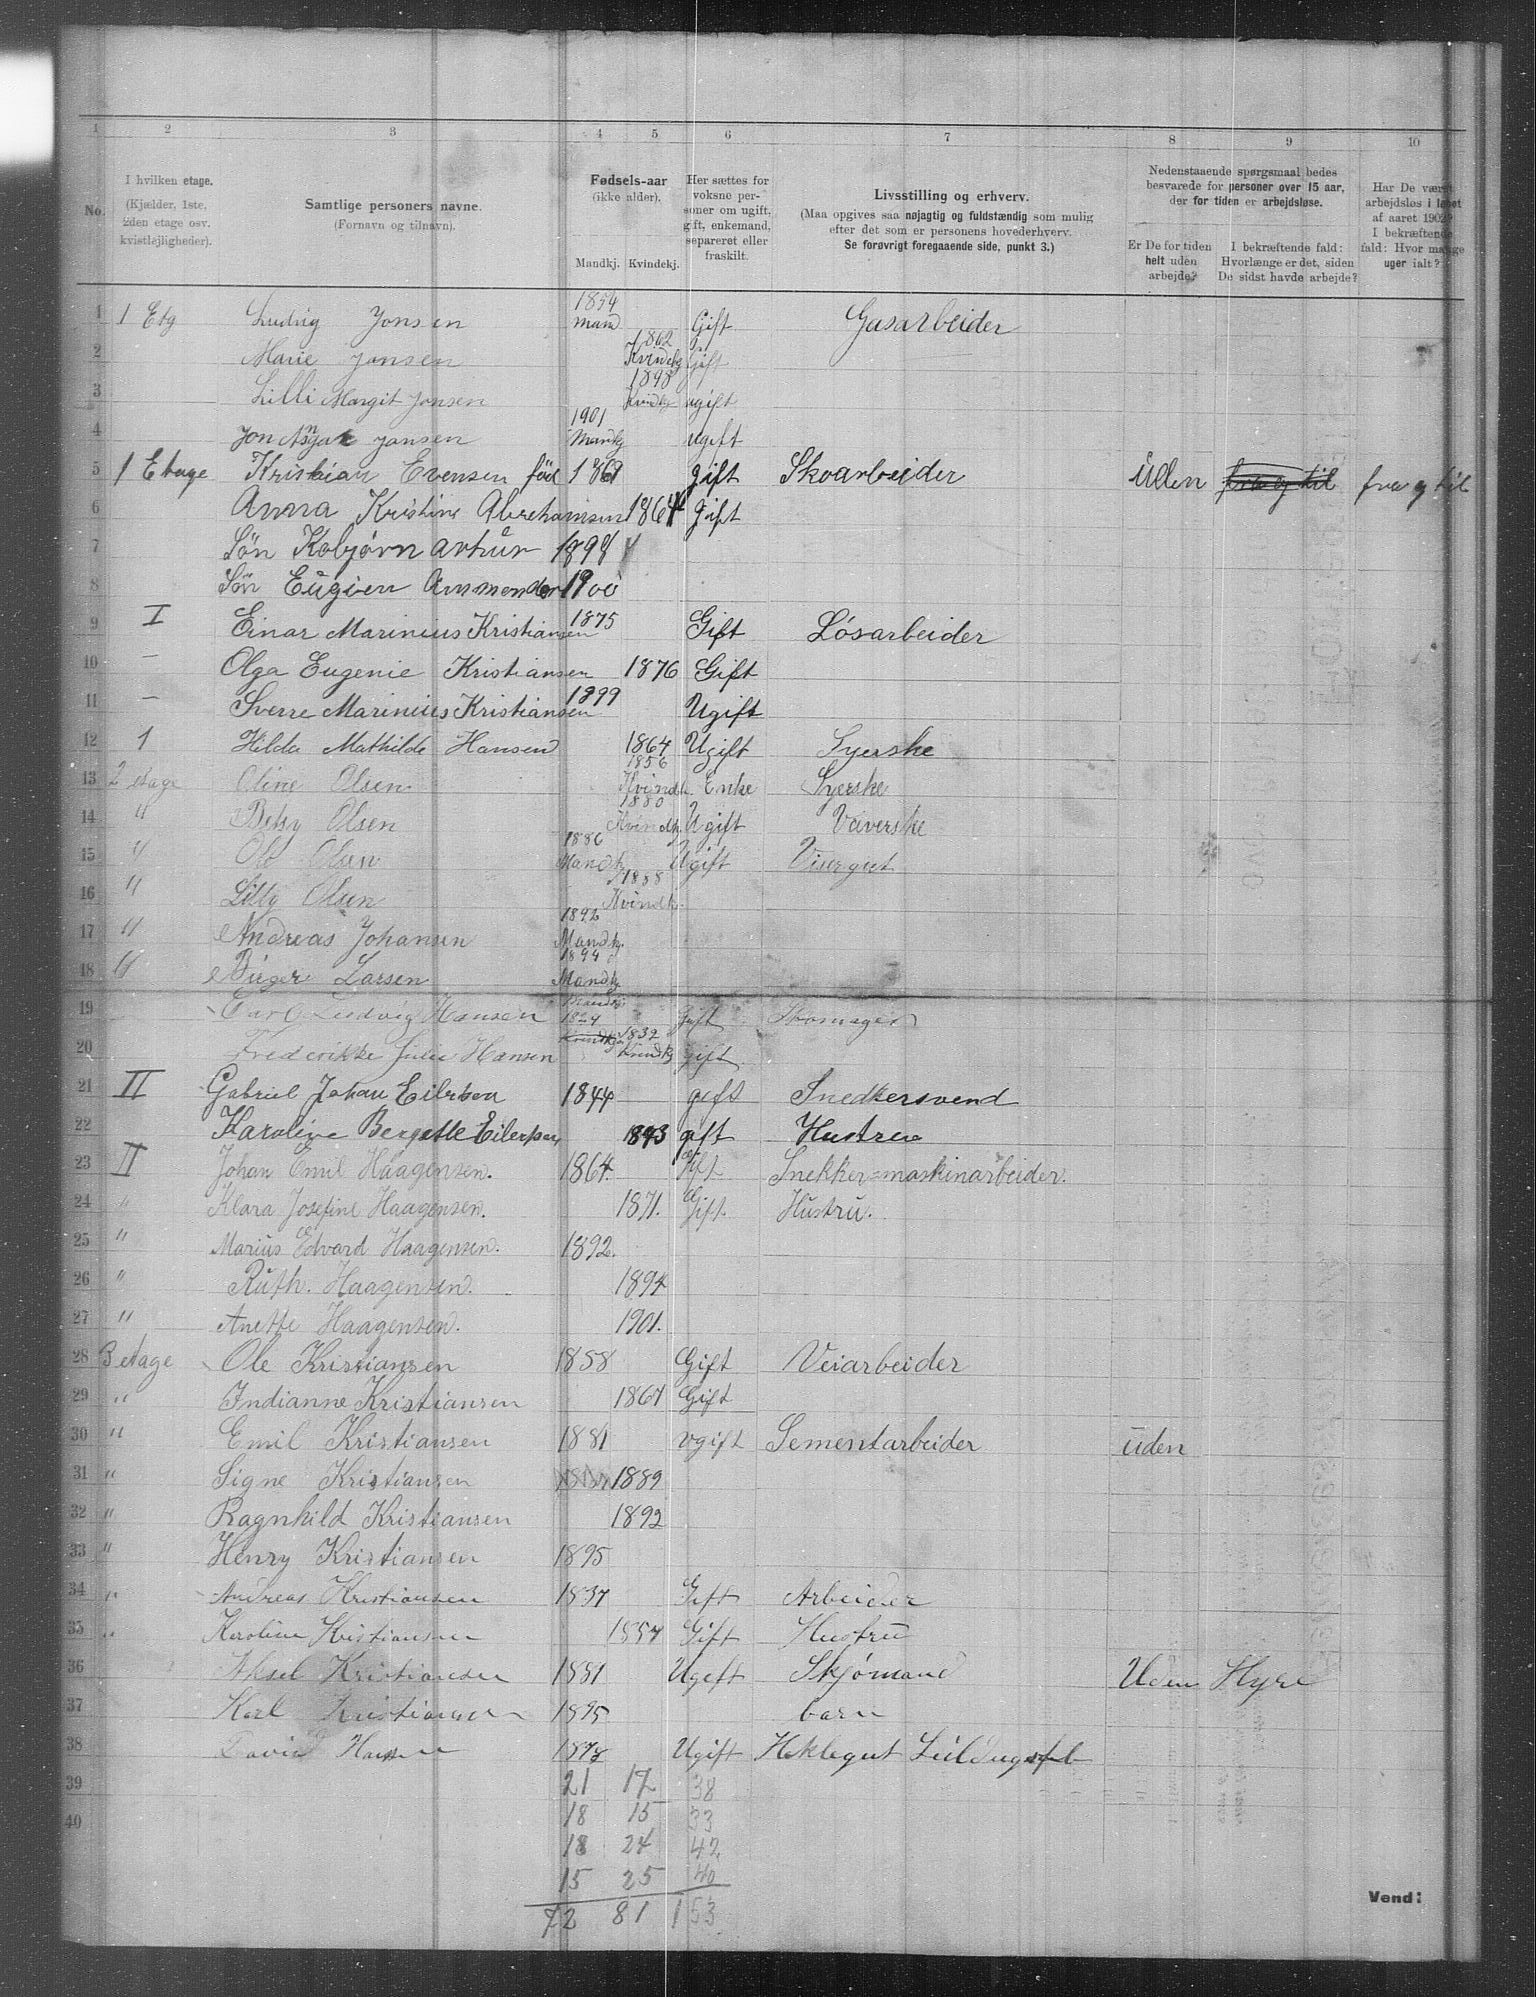 1 2 3 4 5 6 7 8 9 10
No.
I hvilken etage. (Kjælder, 1ste, 2den etage osv. kvistlejligheder).
Samtlige personers navne. (Fornavn og tilnavn).
Fødsels-aar (ikke alder). Mandkj. Kvindekj.
Her sættes for voksne personer om ugift, gift, enkemand, separeret eller fraskilt.
Livsstilling og erhverv. (Maa opgives saa nøjagtig og fuldstændig som mulig efter det som er personens hovederhverv. Se forøvrigt foregaaende side, punkt 3.)
Nedenstaaende spørgsmaal bedes besvarede for personer over 15 aar, der for tiden er arbejdsløse.
Er De for tiden helt uden arbejde?
I bekræftende fald: Hvorlænge er det, siden De sidst havde arbejde?
Har De været arbejdsløs i løbet af aaret 1902? I bekræftende fald: Hvor mange uger ialt?
1 1 Etg Ludvig Jonsen 1854 Mand Gift Gasarbeider
2 Marie Jonsen 1862 Kvindkj Gift
3 Lilli Margit Jonsen 1898 Kvindkj ugift
4 Jon Jonsen 1901 Mandkj ugift
5 1 Etage Kristian Evensen fød 1861 gift Skoarbeider uden fra og til fra og til
6 Anna Kristine Abrehamsen 1864 Gift
7 Søn Kobjørn Artur 1898
8 Søn Eugien 1900
9 I Einar Marinius Kristiansen 1875 Gift Løsarbeider
10 — Olga Eugenie Kristiansen 1876 Gift
11 — Sverre Marinius Kristiansen 1899 Ugift
12 1 Hilda Mathilde Hansen 1864 Ugift Syerske
13 2 etage Oline Olsen 1856 Kvindk. Enke Syerske
14 " Betsy Olsen 1880 Kvindkj Ugift Væverske
15 " Ole Olsen 1886 Mandkj Ugift Visergut
16 " Lilly Olsen 1888 Kvindk.
17 " Andreas Johansen 1892 Mandkj.
18 " Birger Larsen 1894 Mandkj
19 Carl Ludvig Hansen Mandkj. 1824 Gift Skomager
20 Frederikke Julie Hansen Kvindkj 1832 Kvindkj gift
21 II Gabriel Johan Eilertsen 1844 gift Snedkersvend
22 Karoline Bergette Eilertsen 1843 gift Hustrue
23 II Johan Emil Haagensen. 1864. Gift. Snekker=maskinarbeider.
24 " Klara Josefine Haagensen. 1871. Gift. Hustru.
25 " Marius Edvard Haagensen. 1892.
26 " Ruth. Haagensen. 1894
27 " Anette Haagensen. 1901.
28 3 etage Ole Kristiansen 1858 Gift Veiarbeider
29 " Indianne Kristiansen 1867 Gift
30 " Emil Kristiansen 1881 ugift Sementarbeider uden
31 " Signe Kristiansen 1889
32 " Ragnhild Kristiansen 1892
33 " Henry Kristiansen 1895
34 " Andreas Kristiansen 1837 Gift Arbeider
35 " Karoline Kristiansen 1857 Gift Hustru
36 Aksel Kristiansen 1881 Ugift Skjømand Uden Hyre
37 Karl Kristiansen 1895 barn
38 David Hansen 1878 Ugift
39 21 17 38
40 18 15 33
18 24 42
15 25 40
72 81 153
Vend!